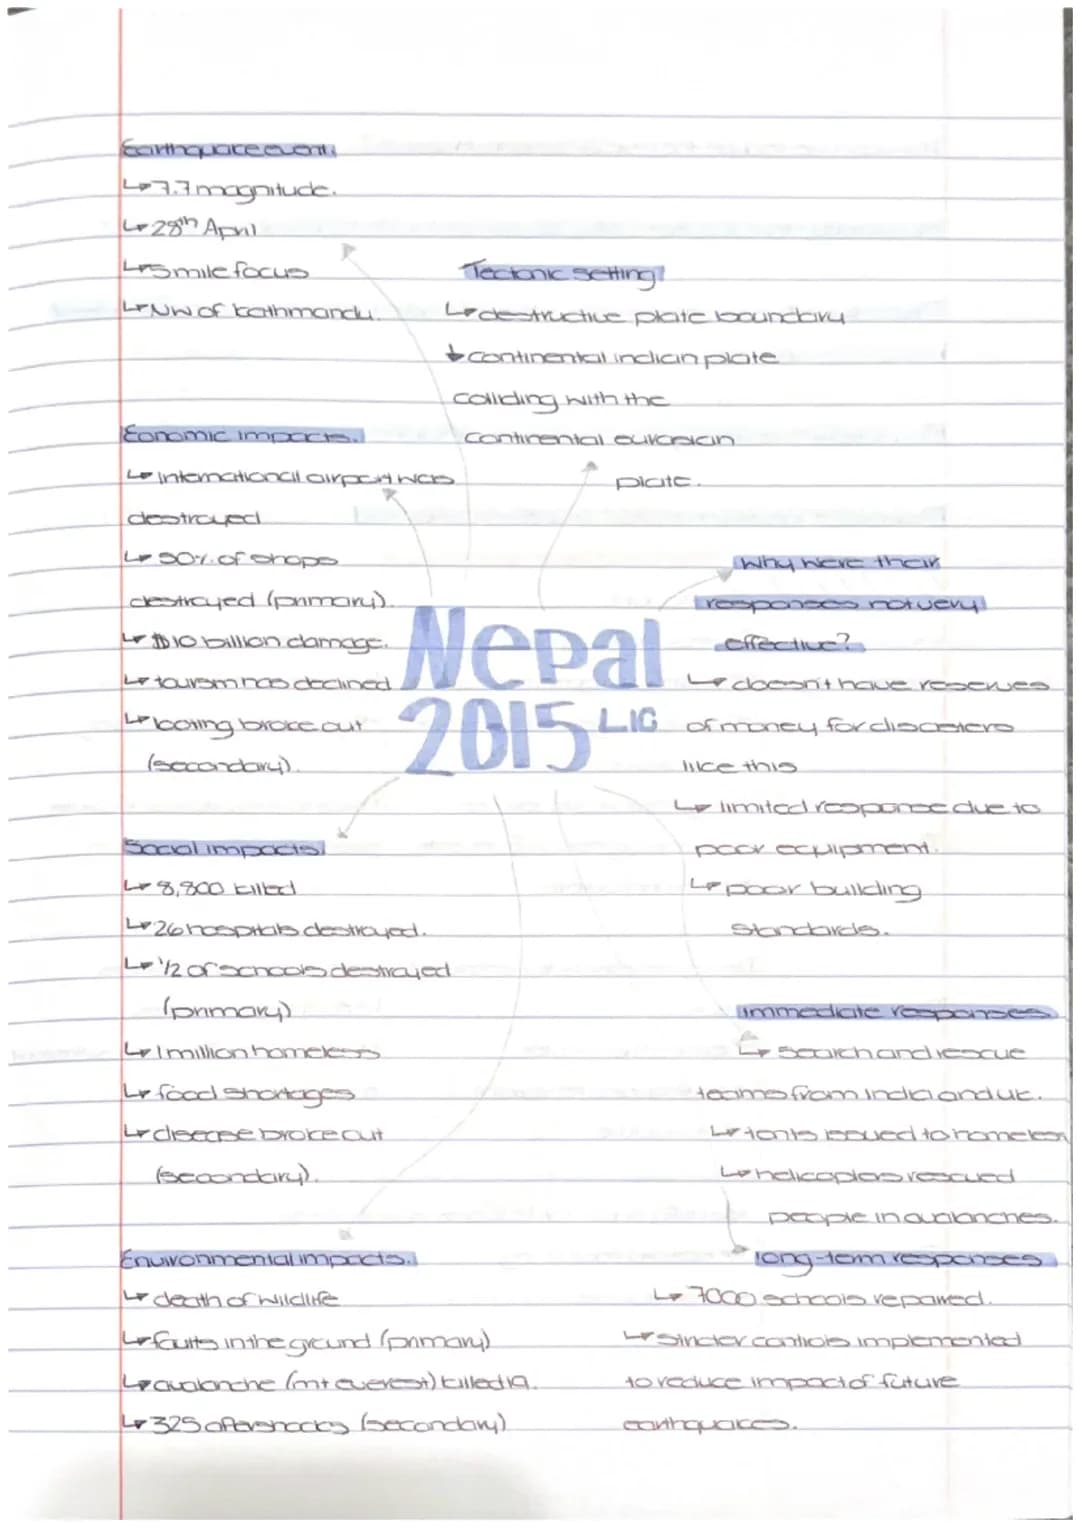 Earthquake event.
↳ 7.7 magnitude.
↳ 28th April
↳ 5 mile focus
↳ NW of kathmandu.
Tectonic setting
↳ destructive plate boundary
↓ continental indian plate
colliding with the
continental eurasian
plate.
Economic impacts.
↳ international airport was
destroyed
↳ 50% of shops
destroyed (primary).
↳ $10 billion damage.
↳ tourism has declined
↳ looting broke out
(secondary).
Nepal
2015 LIC
Why were their
responses not very
effective?
↳ doesn't have reserves
of money for disasters
like this
↳ limited response due to
poor equipment.
↳ poor building
standards.
Social impacts.
↳ 8,800 killed
↳ 26 hospitals destroyed.
↳ 1/2 of schools destroyed
(primary)
↳ 1 million homeless
↳ food shortages
↳ disease broke out
(secondary).
immediate responses
↳ search and rescue
teams from india and uk.
↳ tents issued to homeless
↳ helicopters rescued
people in avalanches.
Environmental impacts.
↳ death of wildlife
↳ faults in the ground (primary)
↳ avalanche (mt everest) killed 19.
↳ 325 aftershocks (secondary)
long-term responses
↳ 7000 schools repaired.
↳ stricter controls implemented
to reduce impact of future
earthquakes.